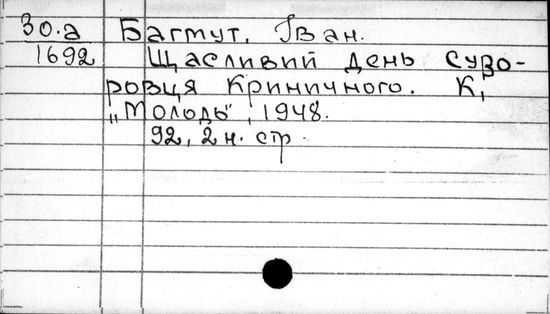 30.а Багмут, Іван.
1692 Щасливий день суво-
ровця Криничного. К,
„Молодь", 1948.
92, 2 н. стр.